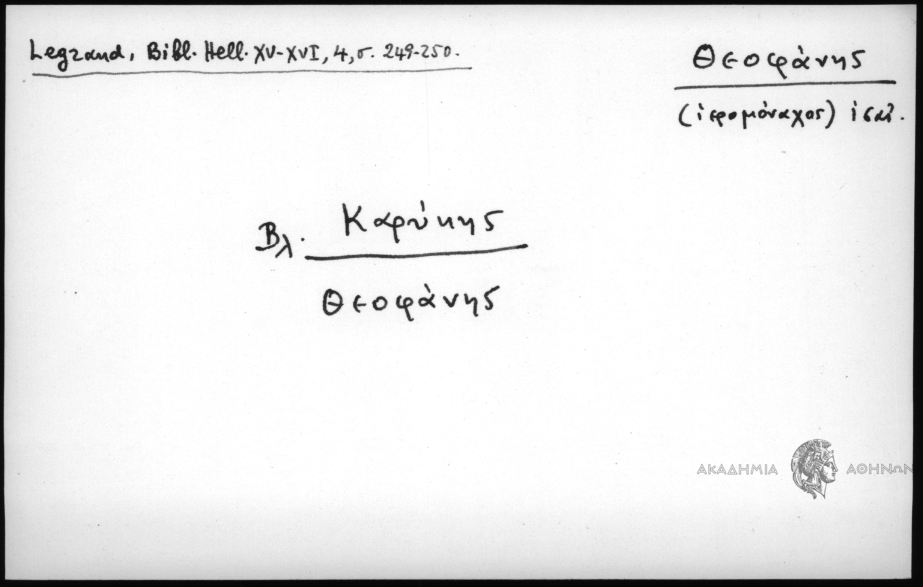 Legrand, Bibl. Hell. XV-XVI, 4, σ. 249-250.
Θεοφάνης
(ἱερομόναχος)
Βλ. Καρύκης
Θεοφάνης
ΑΚΑΔΗΜΙΑ ΑΘΗΝΩΝ